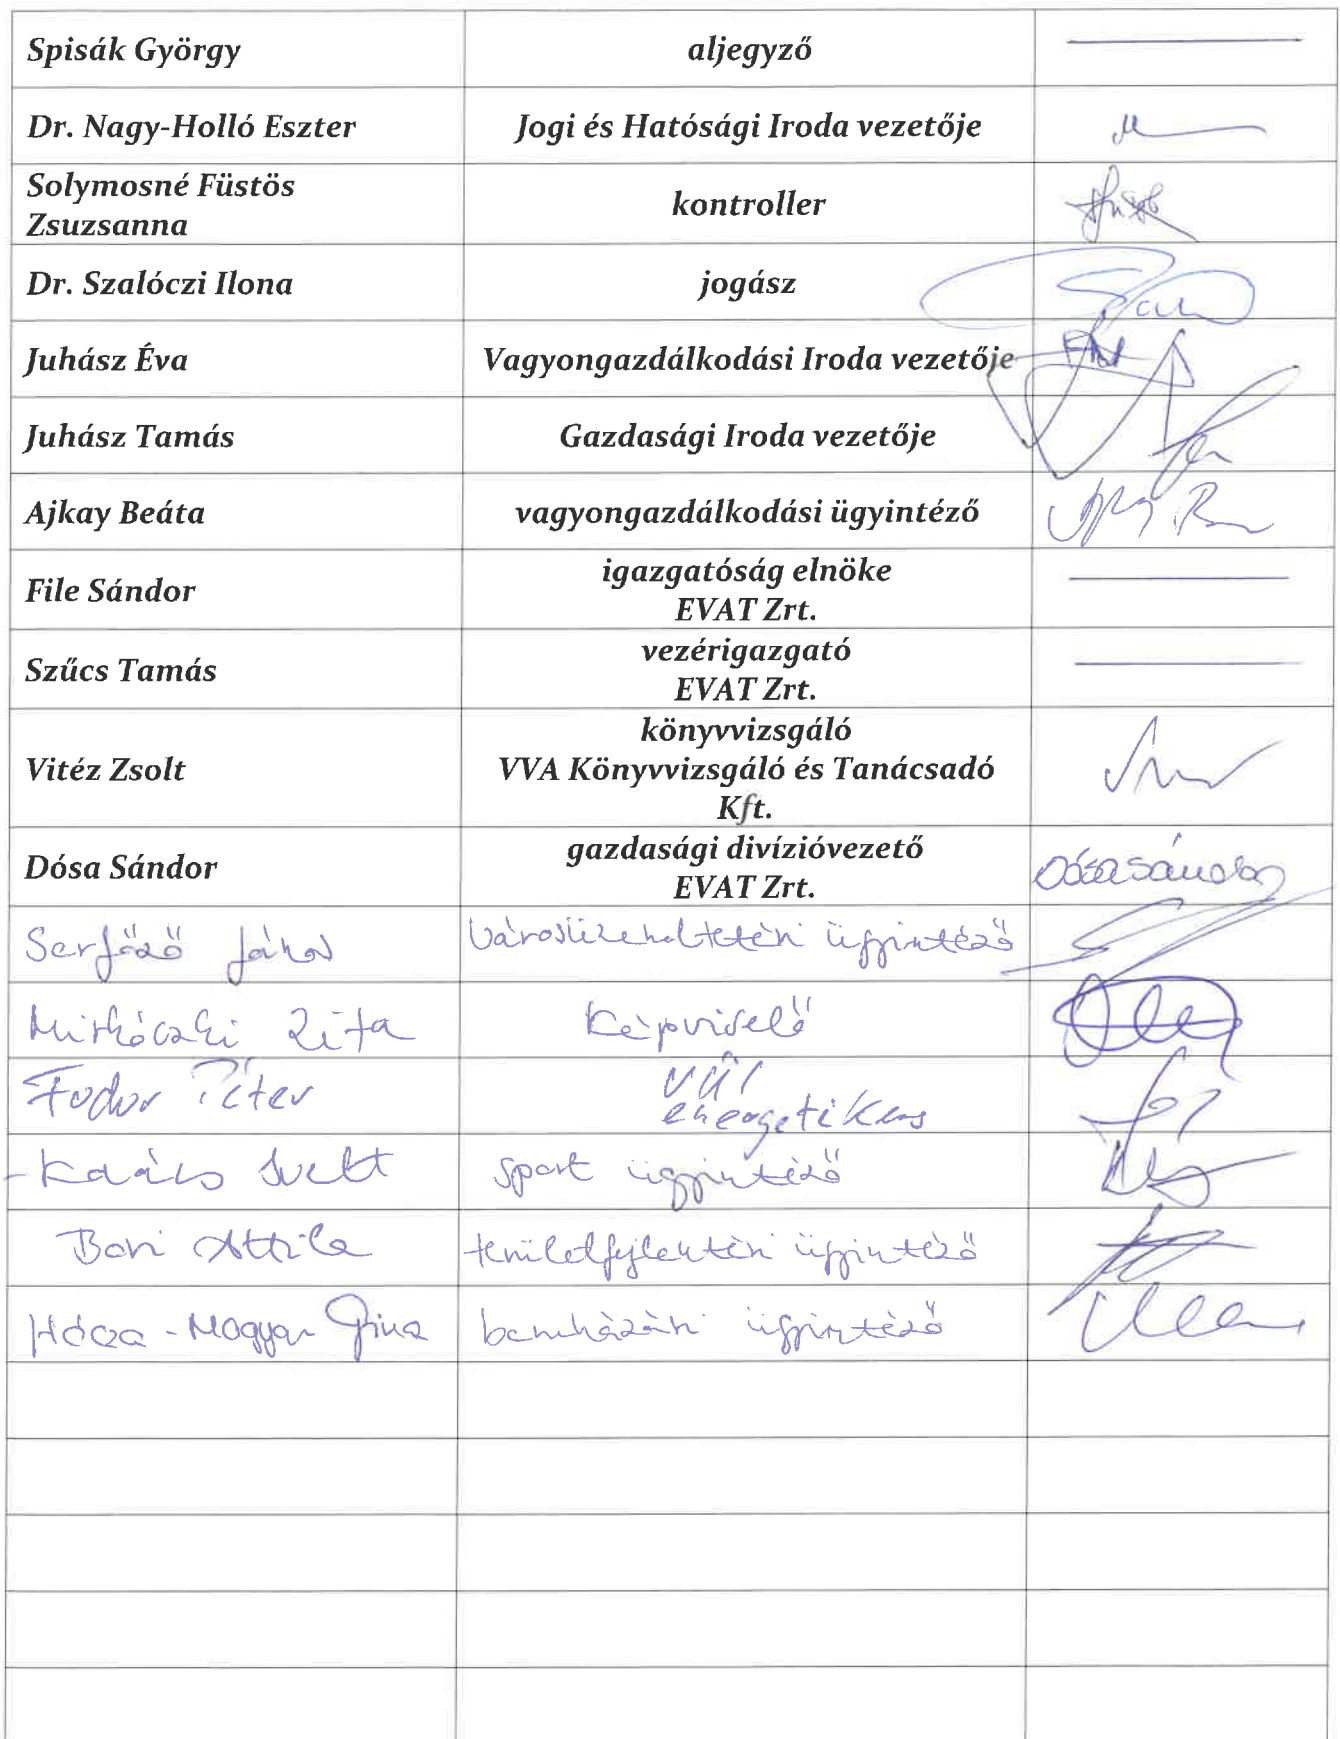 Spisák György aljegyző
Dr. Nagy-Holló Eszter Jogi és Hatósági Iroda vezetője
Solymosné Füstös
Zsuzsanna kontroller
Dr. Szalóczi Ilona jogász
Juhász Éva Vagyongazdálkodási Iroda vezetője
Juhász Tamás Gazdasági Iroda vezetője
Ajkay Beáta vagyongazdálkodási ügyintéző
File Sándor igazgatóság elnöke
EVAT Zrt.
Szűcs Tamás vezérigazgató
EVAT Zrt.
Vitéz Zsolt könyvvizsgáló
VVA Könyvvizsgáló és Tanácsadó
Kft.
Dósa Sándor gazdasági divízióvezető
EVAT Zrt. Dósa Sándor
Serfőző János városüzemeltetési ügyintéző
Mirkóczki Zita Képviselő
Fodor Péter VÜI
energetikus
Kovács sport ügyintéző
Bori Attila területfejlesztési ügyintéző
Hócza-Magyar Gina beruházási ügyintéző